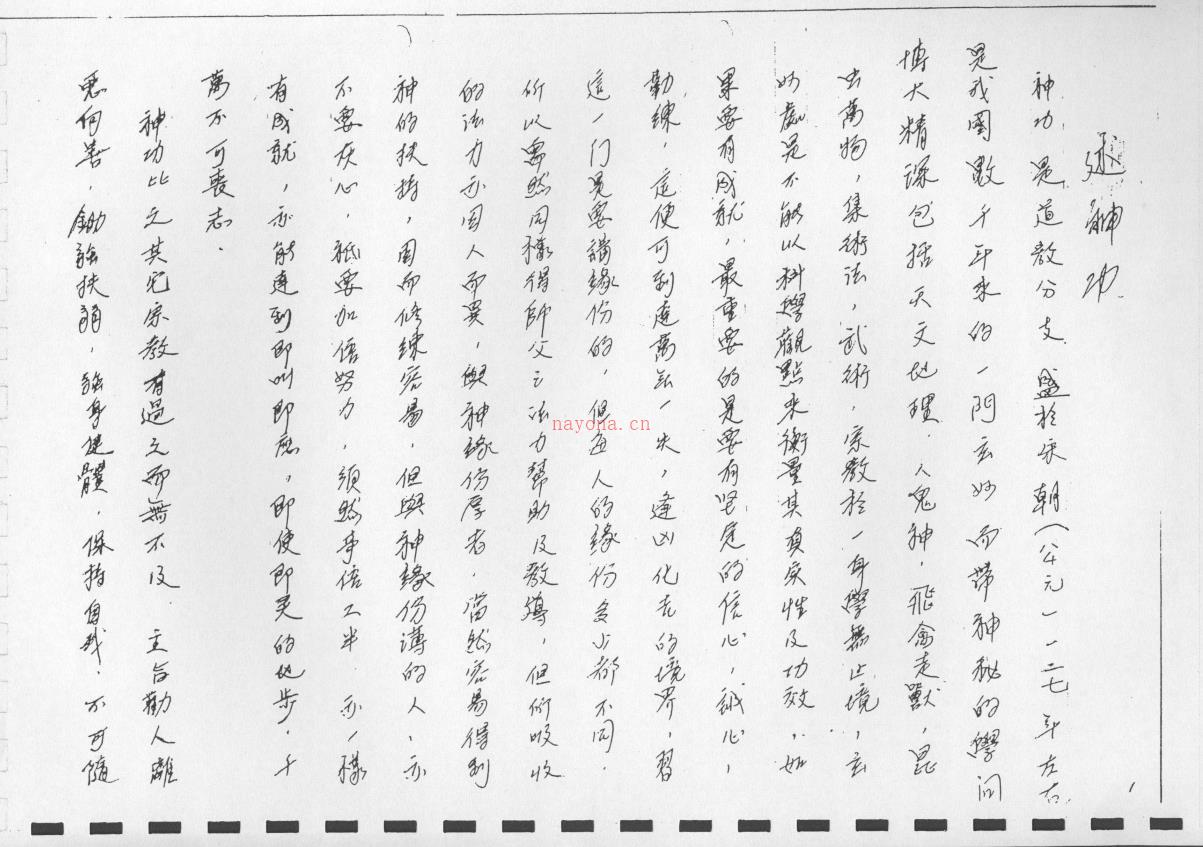 述神功
神功是道教分支盛於宋朝(公元一一二七年左右
是我國數千年來的一門玄妙而帶神秘的學問
博大精深包括天文地理.人鬼神.飛禽走獸,昆
虫萬物,集術法,武術.宗教於一身學無止境,玄
妙處是不能以科學觀點來衡量其真实性及功效,如
果要有成就,最重要的是要有坚定的信心,誠心,
勤練,這便可到達萬無一失,逢凶化吉的境界,習
這一门是要講緣份的,但每人的緣份多少都不同.
所以雖然同樣得師父之法力幫助及教導,但所吸收
的法力亦因人而異,與神緣份厚者,當然容易得到
神的扶持,因而修練容易,但與神緣份薄的人,亦
不要灰心.祗要加倍努力,須然事倍工半 亦一樣
有成就,亦能達到即叫即應,即使即灵的地步,千
萬不可喪志.
神功比之其它宗教有過之而無不及 主旨勸人離
惡向善.鋤強扶弱,強身健體.保持自我.不可隨
1
nayona.cn